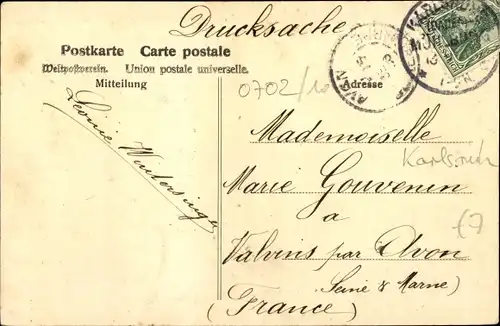 Drucksache
Postkarte Carte postale
Weltpostverein. Union postale universelle.
Mitteilung
Adresse
0702/10
KARLSRUHE
AVON
Léonie
Mademoiselle
Karlsruh
Marie Gouvenin
a
£7
Valvins par Avon
(Seine & Marne)
(France)